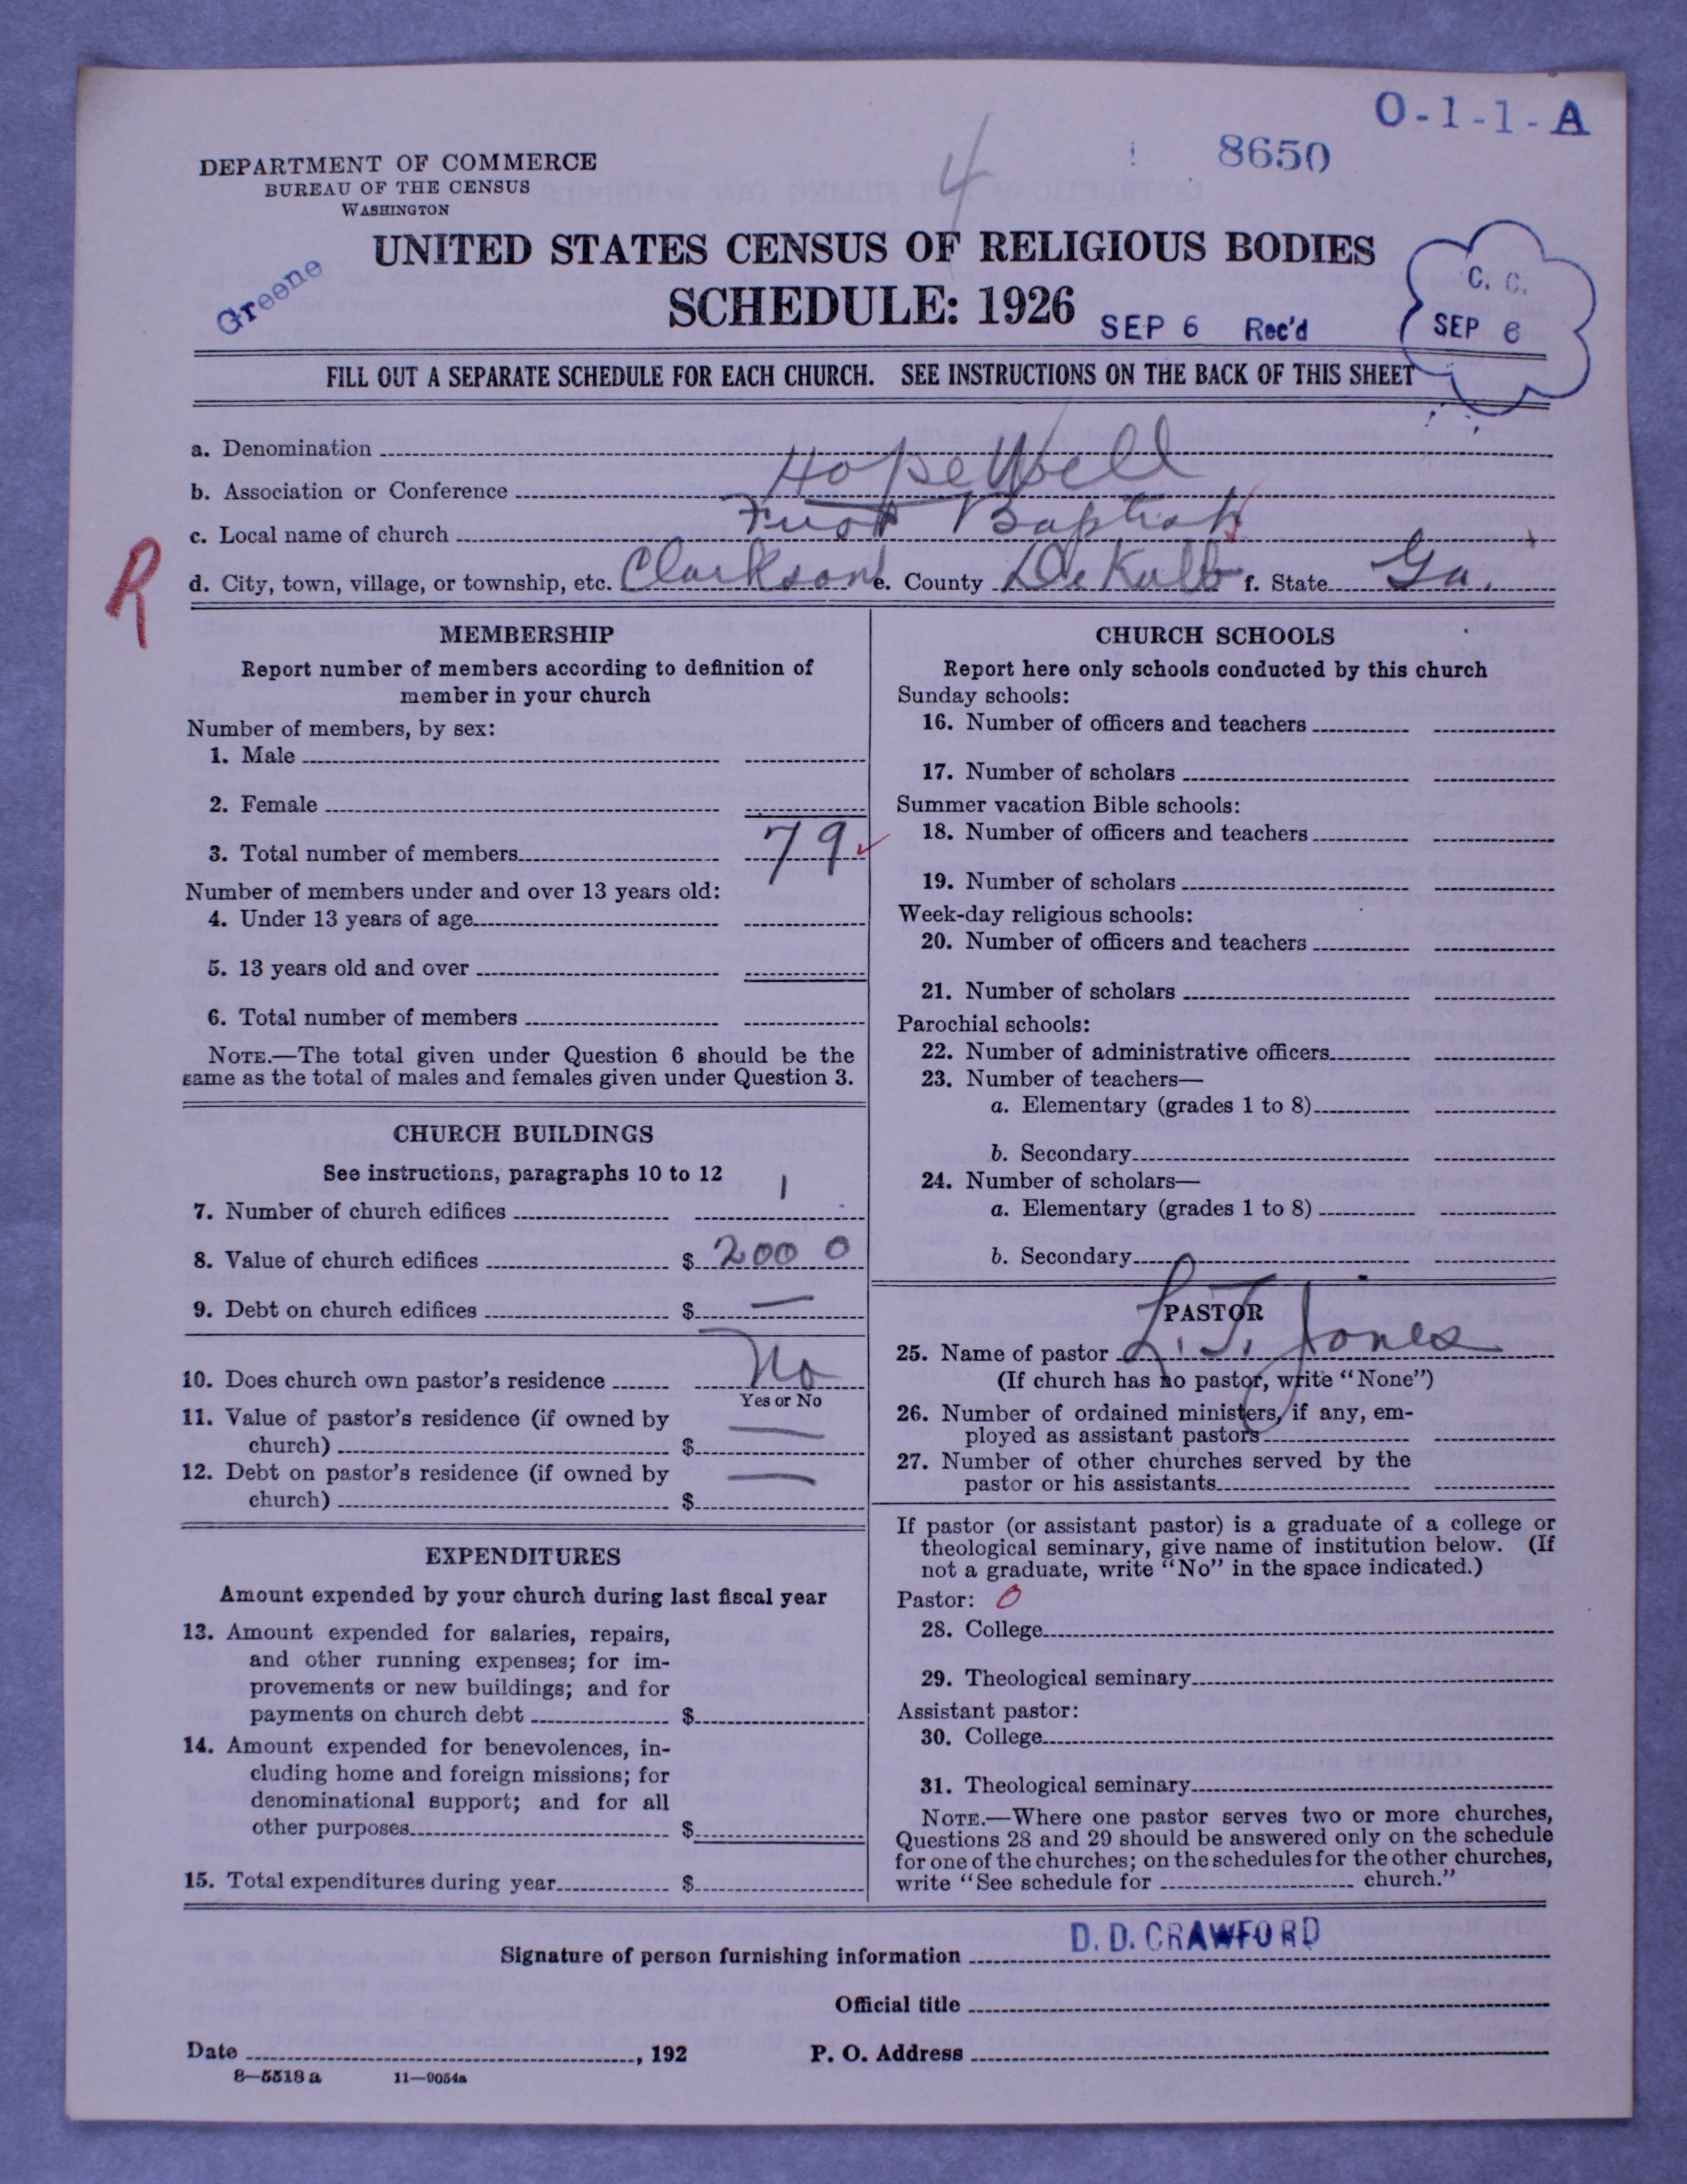 O-1-1-A
8650
4
DEPARTMENT OF COMMERCE
BUREAU OF THE CENSUS
WASHINGTON
UNITED STATES CENSUS OF RELIGIOUS BODIES
Greene
SCHEDULE: 1926
SEP 6 Rec'd
C. C.
SEP 6
FILL OUT A SEPARATE SCHEDULE FOR EACH CHURCH. SEE INSTRUCTIONS ON THE BACK OF THIS SHEET
a. Denomination
b. Association or Conference Hopewell
c. Local name of church First Baptist
R
d. City, town, village, or township, etc. Clarkson e. County DeKalb f. State Ga.
MEMBERSHIP
Report number of members according to definition of
member in your church
Number of members, by sex:
1. Male
2. Female
3. Total number of members 79
Number of members under and over 13 years old:
4. Under 13 years of age
5. 13 years old and over
6. Total number of members
NOTE.—The total given under Question 6 should be the
same as the total of males and females given under Question 3.
CHURCH BUILDINGS
See instructions, paragraphs 10 to 12
7. Number of church edifices 1
8. Value of church edifices $ 2000
9. Debt on church edifices $ —
10. Does church own pastor's residence No
Yes or No
11. Value of pastor's residence (if owned by
church) $ —
12. Debt on pastor's residence (if owned by
church) $ —
EXPENDITURES
Amount expended by your church during last fiscal year
13. Amount expended for salaries, repairs,
and other running expenses; for im-
provements or new buildings; and for
payments on church debt $
14. Amount expended for benevolences, in-
cluding home and foreign missions; for
denominational support; and for all
other purposes $
15. Total expenditures during year $
CHURCH SCHOOLS
Report here only schools conducted by this church
Sunday schools:
16. Number of officers and teachers
17. Number of scholars
Summer vacation Bible schools:
18. Number of officers and teachers
19. Number of scholars
Week-day religious schools:
20. Number of officers and teachers
21. Number of scholars
Parochial schools:
22. Number of administrative officers
23. Number of teachers—
a. Elementary (grades 1 to 8)
b. Secondary
24. Number of scholars—
a. Elementary (grades 1 to 8)
b. Secondary
PASTOR
25. Name of pastor L. T. Jones
(If church has no pastor, write "None")
26. Number of ordained ministers, if any, em-
ployed as assistant pastors
27. Number of other churches served by the
pastor or his assistants
If pastor (or assistant pastor) is a graduate of a college or
theological seminary, give name of institution below. (If
not a graduate, write "No" in the space indicated.)
Pastor: 0
28. College
29. Theological seminary
Assistant pastor:
30. College
31. Theological seminary
NOTE.—Where one pastor serves two or more churches,
Questions 28 and 29 should be answered only on the schedule
for one of the churches; on the schedules for the other churches,
write "See schedule for church."
Signature of person furnishing information D. D. CRAWFORD
Official title
Date , 192 P. O. Address
8—5518 a 11—9054a